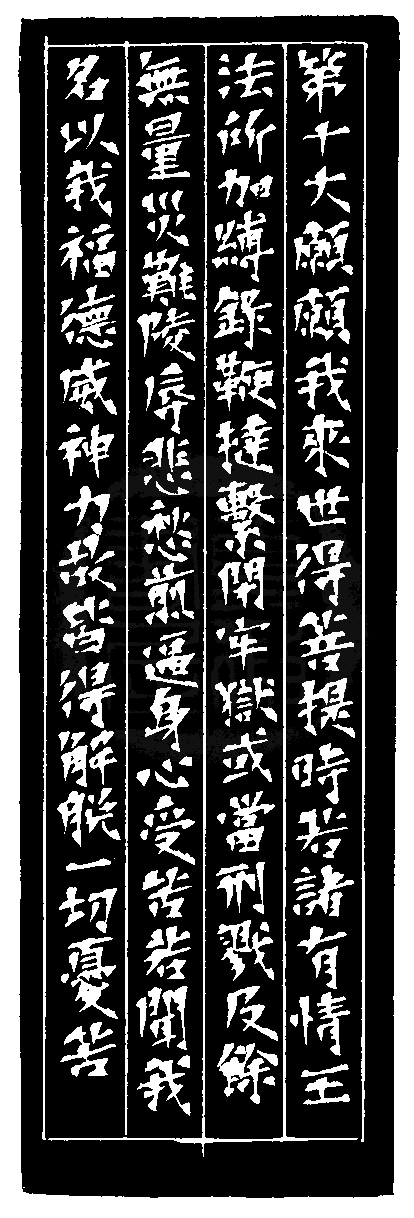 第十大願願我來世得菩提時若諸有情王
法所加縛錄鞭撻繫閉牢獄或當刑戮及餘
無量災難陵辱悲愁煎逼身心受苦若聞我
名以我福德威神力故皆得解脫一切憂苦